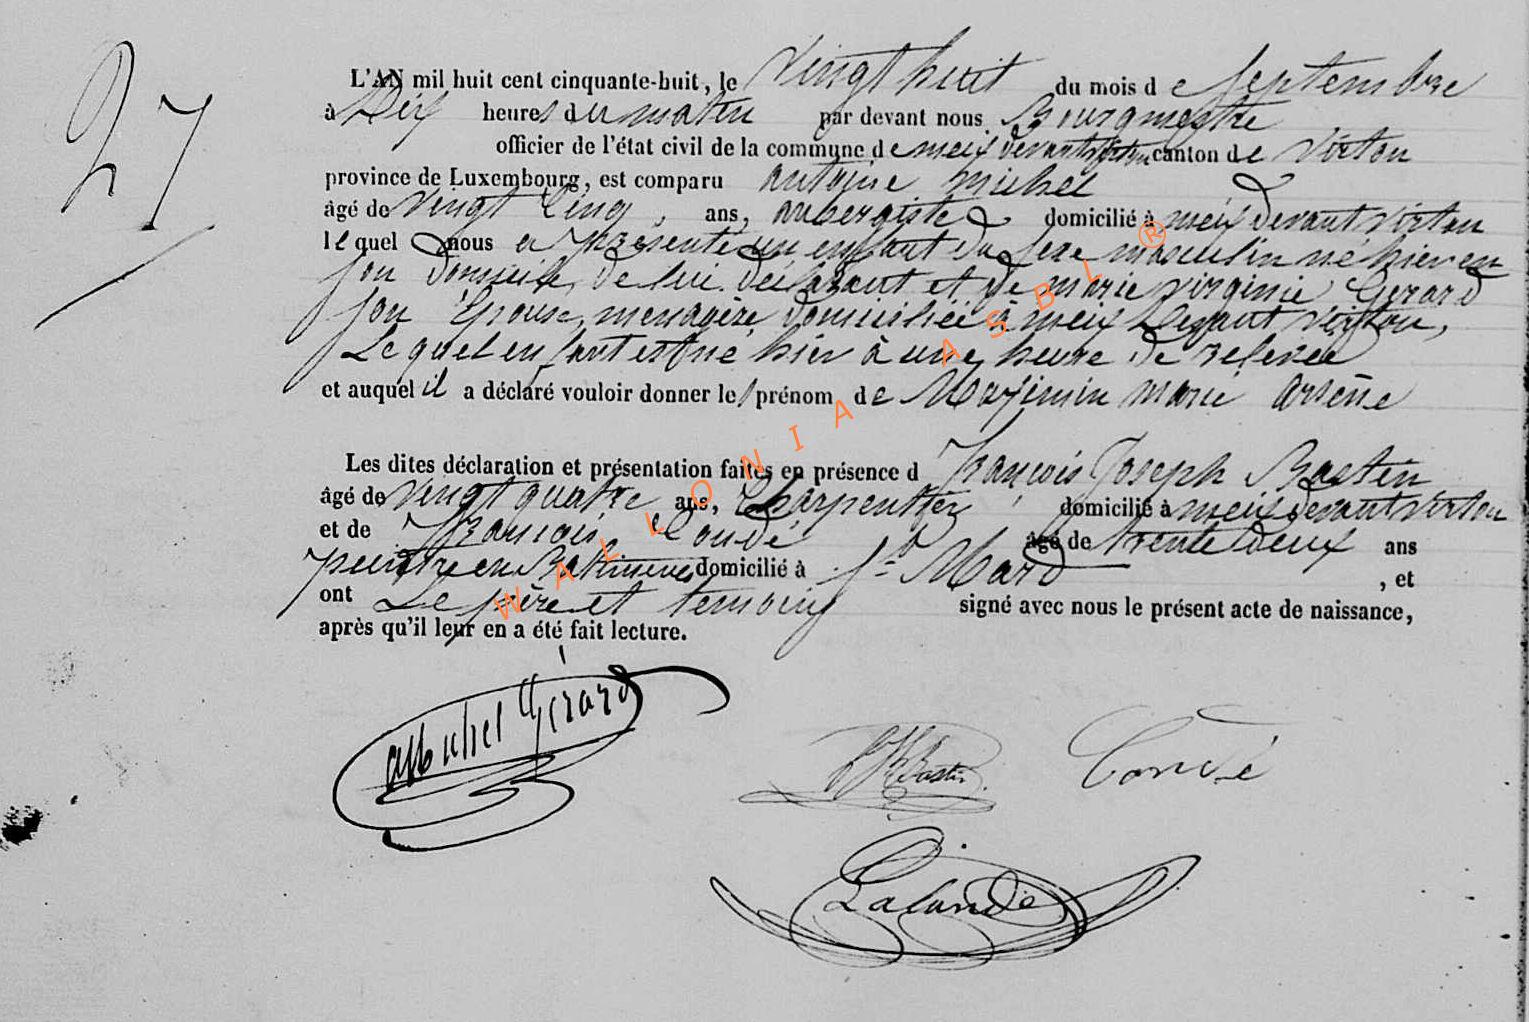 27
L'AN mil huit cent cinquante-huit, le vingt huit du mois de Septembre
à Dix heures du matin par devant nous Bourgmestre
officier de l'état civil de la commune de meix devant virton canton de virton
province de Luxembourg, est comparu antoine michel
âgé de vingt cinq, ans, aubergiste domicilié à meix devant virton
lequel nous a présenté un enfant du sexe masculin né hier en
son domicile, de lui déclarant et de marie virginie Gerard
son Epouse, menagère, domiciliée à meix Devant virton,
Le quel enfant est né hier à une heure de relevée
et auquel il a déclaré vouloir donner les prénom de Maximin marie arsène
Les dites déclaration et présentation faites en présence d François Joseph Bastin
âgé de vingt quatre ans, Charpentier domicilié à meix devant virton
et de François Condé âgé de trente deux ans
peintre en Batiments domicilié à St Mard , et
ont Le père et temoins signé avec nous le présent acte de naissance,
après qu'il leur en a été fait lecture.
aMichel Gérard
Bastin Condé
Lalande
WALLONIA ASBL ®